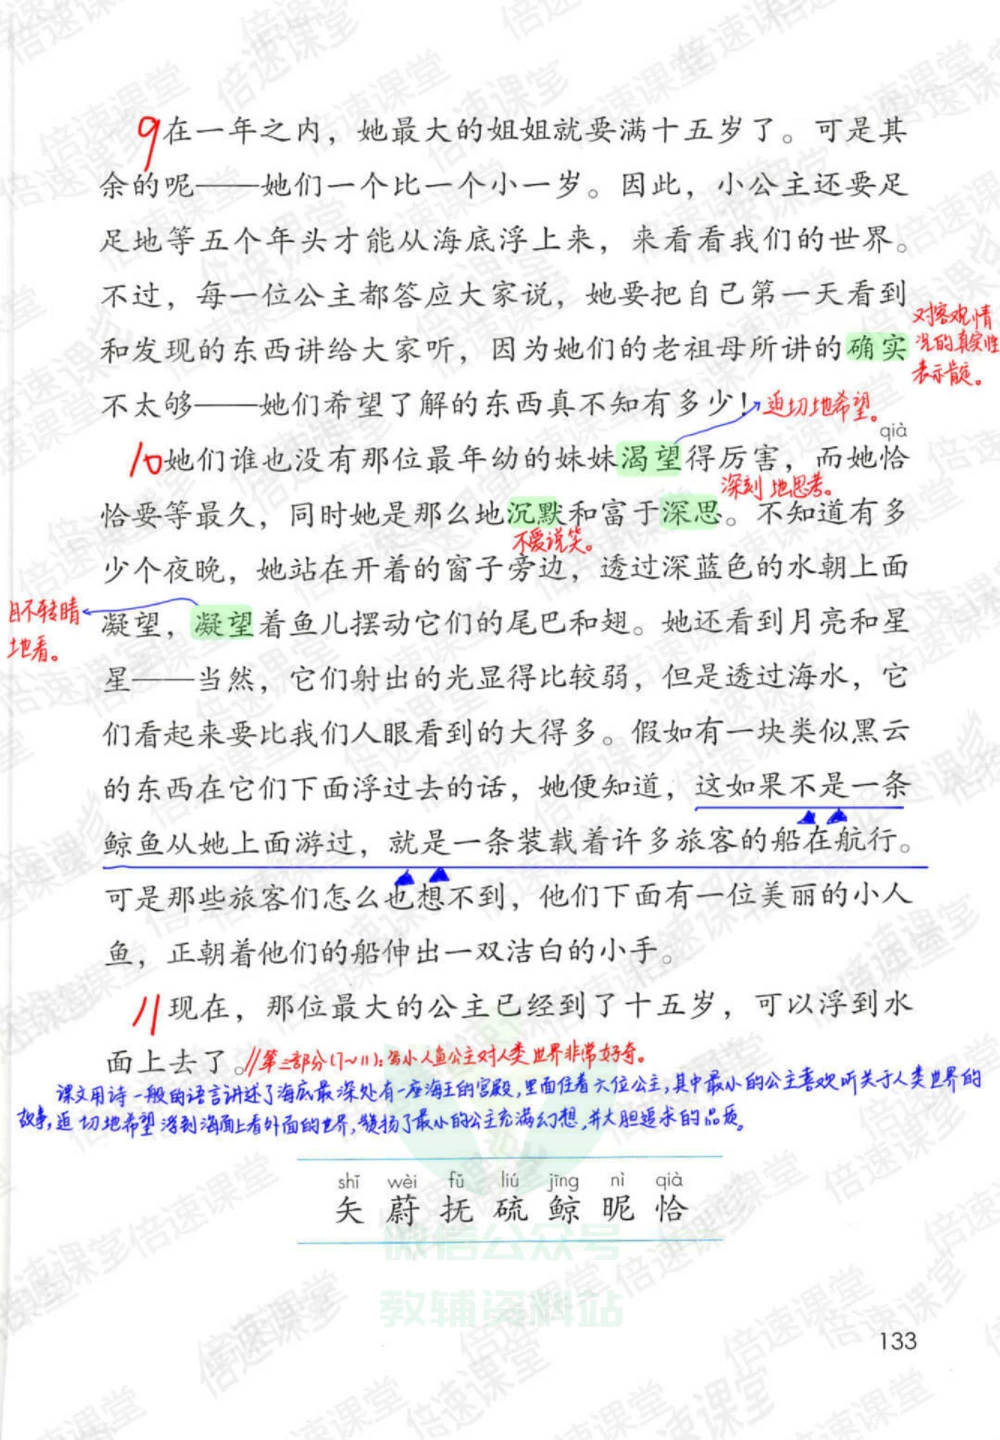 9在一年之内，她最大的姐姐就要满十五岁了。可是其
余的呢——她们一个比一个小一岁。因此，小公主还要足
足地等五个年头才能从海底浮上来，来看看我们的世界。
不过，每一位公主都答应大家说，她要把自己第一天看到
和发现的东西讲给大家听，因为她们的老祖母所讲的确实
对客观情
况的真实性
表示肯定。
不太够——她们希望了解的东西真不知有多少！
迫切地希望。
qià
10她们谁也没有那位最年幼的妹妹渴望得厉害，而她恰
深刻地思考。
恰要等最久，同时她是那么地沉默和富于深思。不知道有多
不爱说笑。
少个夜晚，她站在开着的窗子旁边，透过深蓝色的水朝上面
目不转睛
地看。
凝望，凝望着鱼儿摆动它们的尾巴和翅。她还看到月亮和星
星——当然，它们射出的光显得比较弱，但是透过海水，它
们看起来要比我们人眼看到的大得多。假如有一块类似黑云
的东西在它们下面浮过去的话，她便知道，这如果不是一条
鲸鱼从她上面游过，就是一条装载着许多旅客的船在航行。
可是那些旅客们怎么也想不到，他们下面有一位美丽的小人
鱼，正朝着他们的船伸出一双洁白的小手。
11现在，那位最大的公主已经到了十五岁，可以浮到水
面上去了。//第三部分(7~11)：写小人鱼公主对人类世界非常好奇。
课文用诗一般的语言讲述了海底最深处有一座海王的宫殿，里面住着六位公主，其中最小的公主喜欢听关于人类世界的
故事，迫切地希望浮到海面上看外面的世界，赞扬了最小的公主充满幻想，并大胆追求的品质。
shǐ wèi fǔ liú jīng nì qià
矢 蔚 抚 硫 鲸 昵 恰
微信公众号
教辅资料站
133
倍速课堂